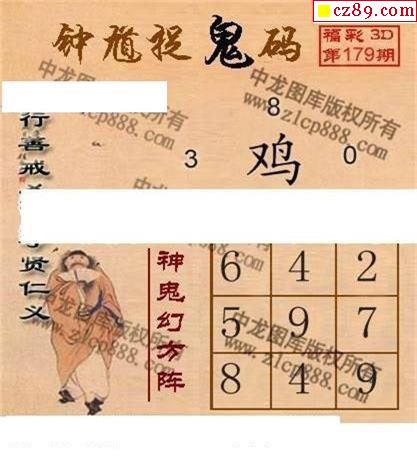 cz89.com
钟馗捉鬼码
福彩 3D
第179期
中龙图库版权所有
www.zlcp888.com
8
3 鸡 0
行善戒
贤仁义
神鬼幻方阵
6 4 2
5 9 7
8 4 9
中龙图库版权所有
www.zlcp888.com